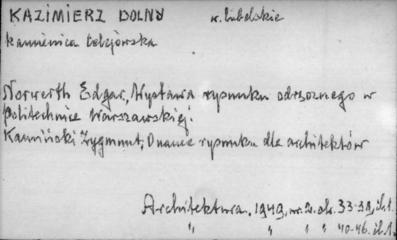 KAZIMIERZ DOLNY w. lubelskie
kamienica Celejowska
Norwerth Edgar, Wystawa rysunku odręcznego w
Politechnice Warszawskiej.
Kamiński Zygmunt, O nauce rysunku dla architektów
Architektura. 1949, nr. 2. ok. 33-39, il. 1.
" " " " 40-46. il. 1.